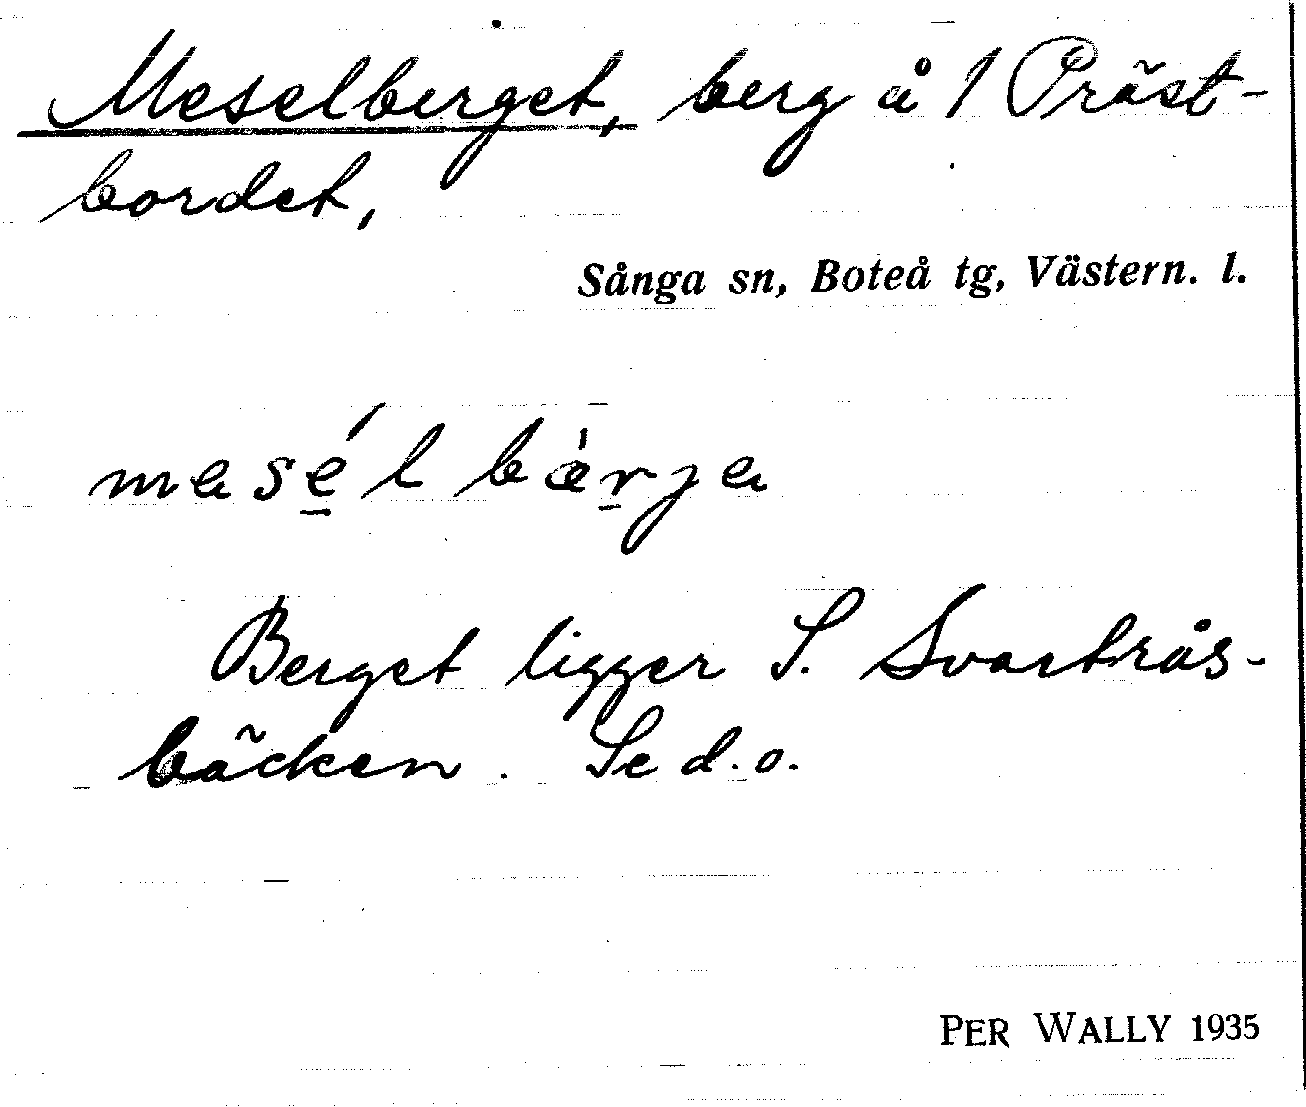 Meselberget, berg å 1 Präst-
bordet,
Sånga sn, Boteå tg, Västern. l.
mesél bærja
Berget ligger S. Svartrås-
bäcken. Se d.o.
PER WALLY 1935